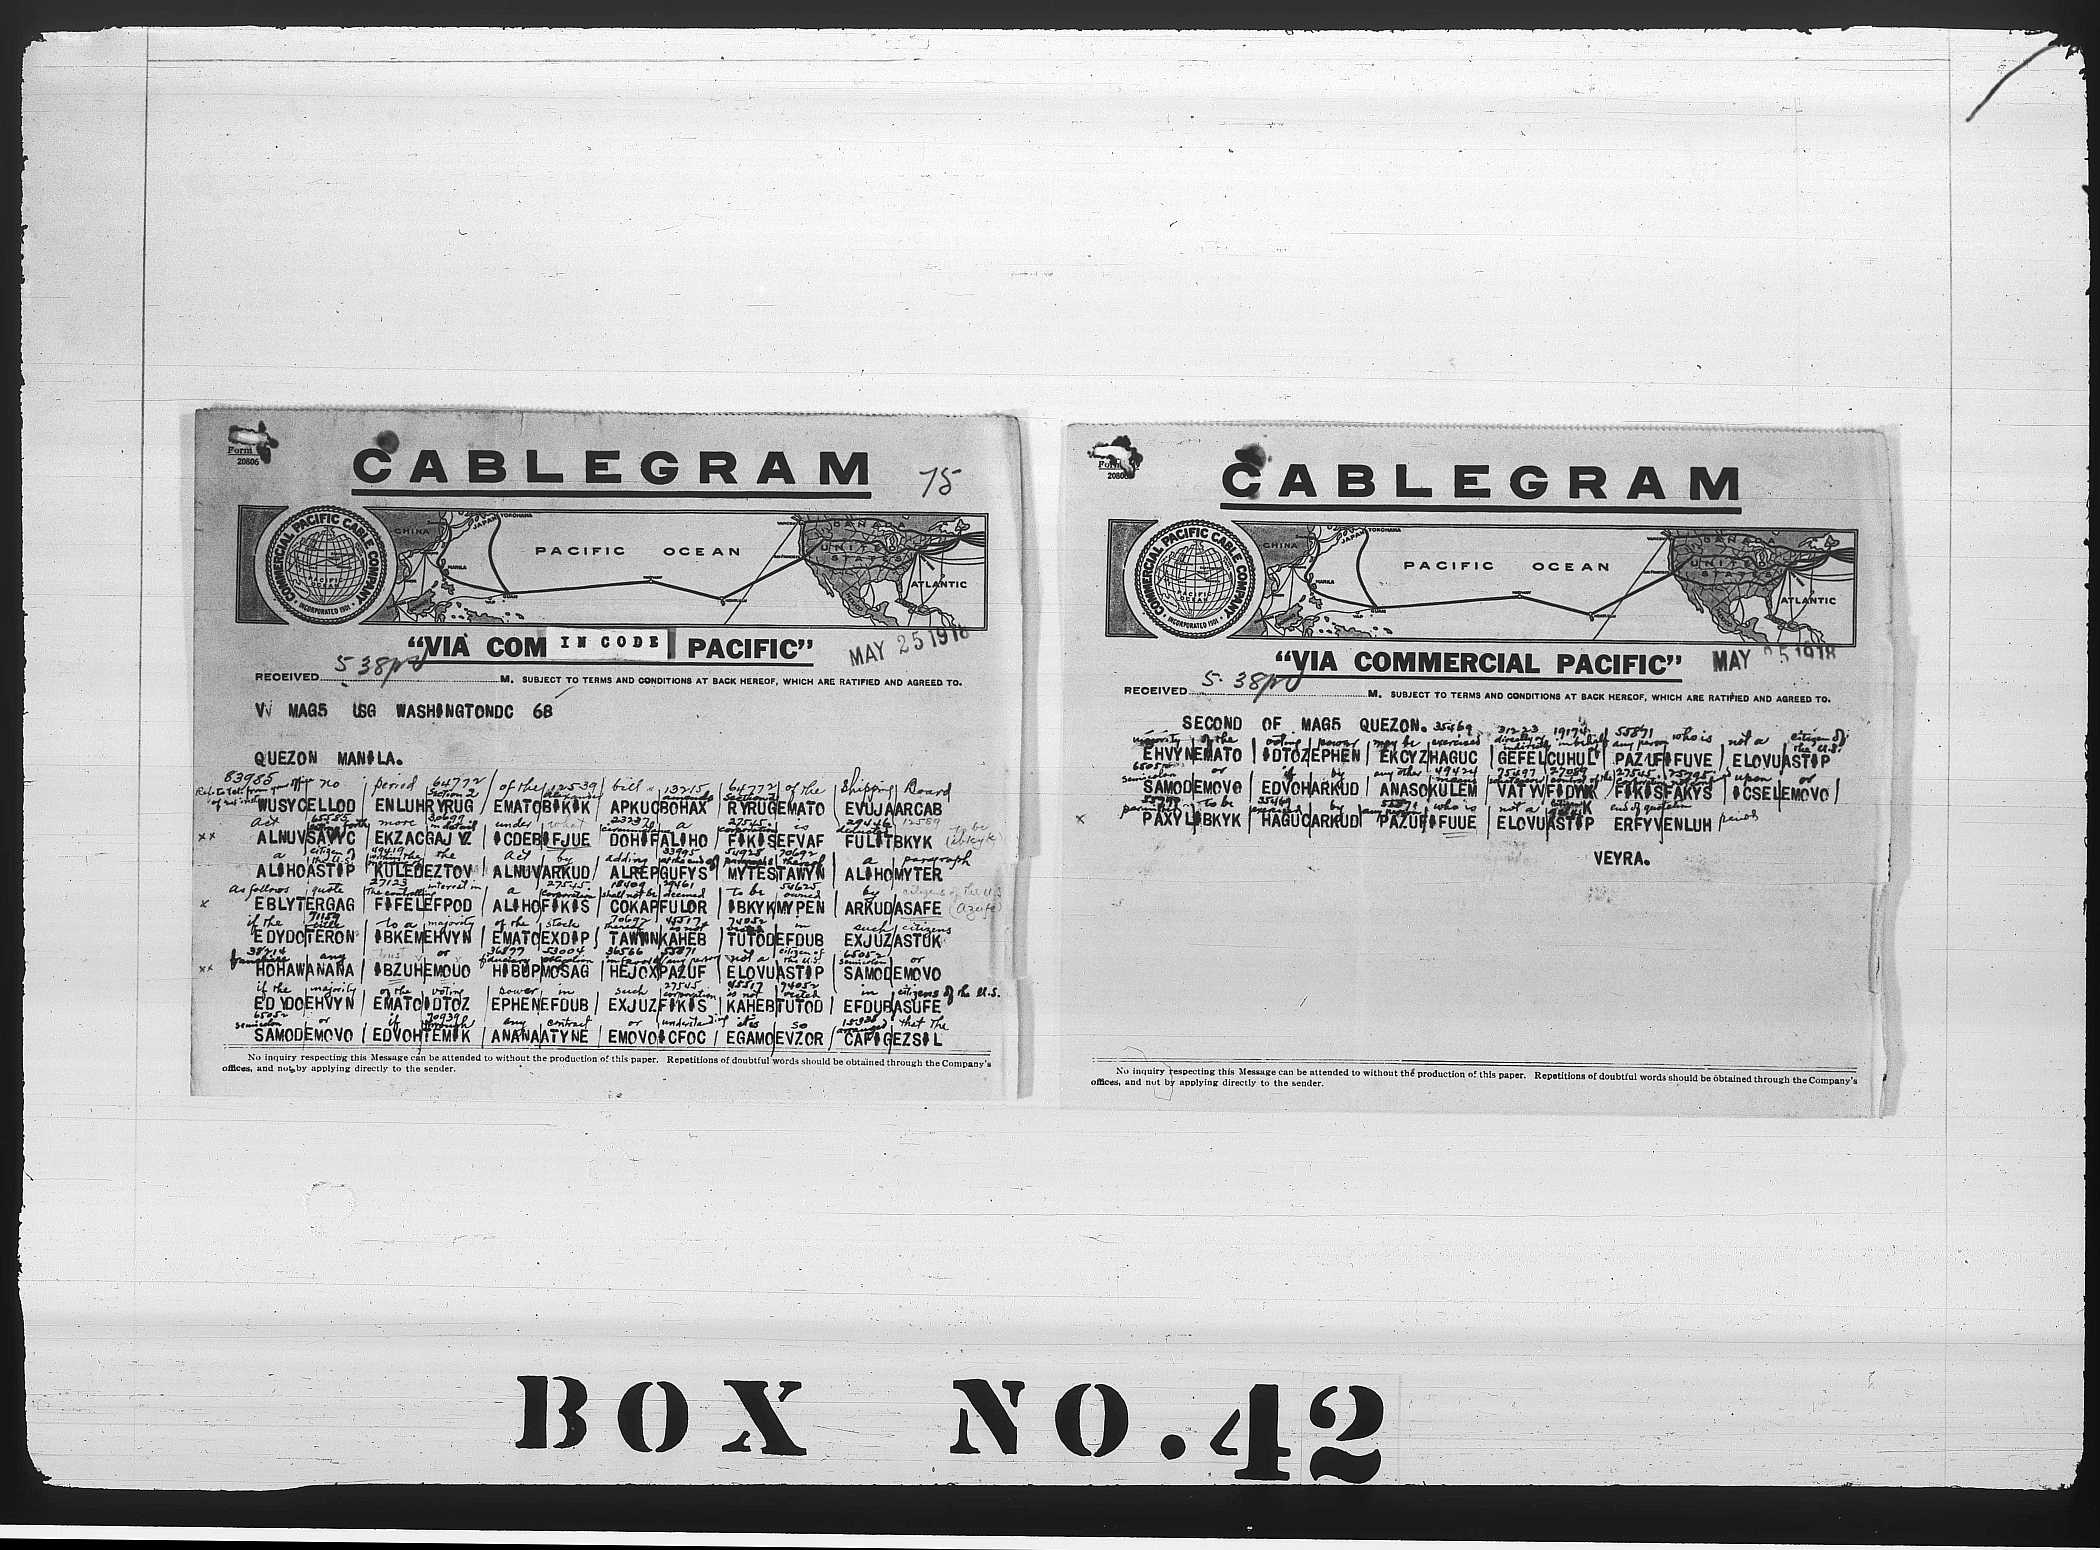 Form
20806
CABLEGRAM
75
COMMERCIAL PACIFIC CABLE COMPANY
INCORPORATED 1901
PACIFIC OCEAN
CHINA
JAPAN
YOKOHAMA
MANILA
GUAM
PACIFIC OCEAN
CANADA
UNITED STATES
ATLANTIC
"VIA COM IN CODE PACIFIC"
MAY 25 1918
RECEIVED 5 38 M. SUBJECT TO TERMS AND CONDITIONS AT BACK HEREOF, WHICH ARE RATIFIED AND AGREED TO.
MAG5 USG WASHINGTONDC 68
QUEZON MANILA.
83985 no period 64772 of the 12539 bill 13215 64772 of the Shipping Board
section 2
WUSYCELLOD ENLUHRYRUG EMATOBIKIK APKUCBOHAX RYRUGEMATO EVUJAARCAB
act 65585 more 30699 under what 23237 a 27545 is 29446 12589
in detail circumstances corporation to be
ALNUVSAVYC EKZACGAJYZ ICDEBIFJUE DOHIFALIHO FIKISEFVAF FULITBKYK
a citizen of the U.S. 49419 the act by adding 33995 54928 70692 a paragraph
ALIHOASTIP KULEDEZTOV ALNUVARKUD ALREPGUFYS MYTESTAWYN ALIHOMYTER
as follows quote 27123 interest in a 27545 18409 29461 to be 54625 by citizens of the U.S.
the controlling corporation shall not be deemed owned
EBLYTERGAG FIFELEFPOD ALIHOFIKIS COKAPFULOR IBKYKMYPEN ARKUDASAFE
if the 71159 to a majority of the stock 70697 45517 74052 in such citizens
EDYDOTERON IBKEMEHVYN EMATOEXDIP TAWINKAHEB TUTODEFDUB EXJUZASTUK
38214 any or 36877 53004 36566 55871 not a citizen of the U.S. 65052 or
fiduciary in favor of any person semicolon
HOHAWANANA IBZUHEMOUO HIBUPMOSAG HEJOXPAZUF ELOVUASTIP SAMODEMOVO
if the majority of the voting power in such 27545 45517 74052 in citizens of the U.S.
corporation is not vested
EDYDOEHVYN EMATOIDTOZ EPHENEFDUB EXJUZFIKIS KAHEBTUTOD EFDUBASUFE
65052 or if 70939 any contract or understanding it is so 15928 that the
semicolon through arranged
SAMODEMOVO EDVOHTEMIK ANANAATYNE EMOVOICFOC EGAMOEVZOR CAFIGEZSIL
No inquiry respecting this Message can be attended to without the production of this paper. Repetitions of doubtful words should be obtained through the Company's
offices, and not by applying directly to the sender.
Form
20806
CABLEGRAM
COMMERCIAL PACIFIC CABLE COMPANY
INCORPORATED 1901
PACIFIC OCEAN
CHINA
JAPAN
YOKOHAMA
MANILA
GUAM
PACIFIC OCEAN
CANADA
UNITED STATES
ATLANTIC
"VIA COMMERCIAL PACIFIC"
MAY 25 1918
RECEIVED 5 38 M. SUBJECT TO TERMS AND CONDITIONS AT BACK HEREOF, WHICH ARE RATIFIED AND AGREED TO.
SECOND OF MAG5 QUEZON.
majority of the voting power may be 35469 31223 19174 55871 who is not a citizen of the U.S.
exercised directly or indirectly in behalf any person
EHVYNEMATO IDTOZEPHEN EKCYZHAGUC GEFELCUHUL PAZUFIFUVE ELOVUASTIP
65052 or if by any other 49424 75497 27089 27545 upon or
semicolon means whatsoever control of the corporation
SAMODEMOVO EDVOHARKUD ANASOKULEM VATYVFIDYK FIKISFAKYS ICSELEMOVO
to be 35469 by 55871 who is not a citizen end of quotation period
PAXYLIBKYK HAGUCARKUD PAZUFIFUUE ELOVUASTIP ERFYVENLUH
VEYRA.
No inquiry respecting this Message can be attended to without the production of this paper. Repetitions of doubtful words should be obtained through the Company's
offices, and not by applying directly to the sender.
BOX NO. 42